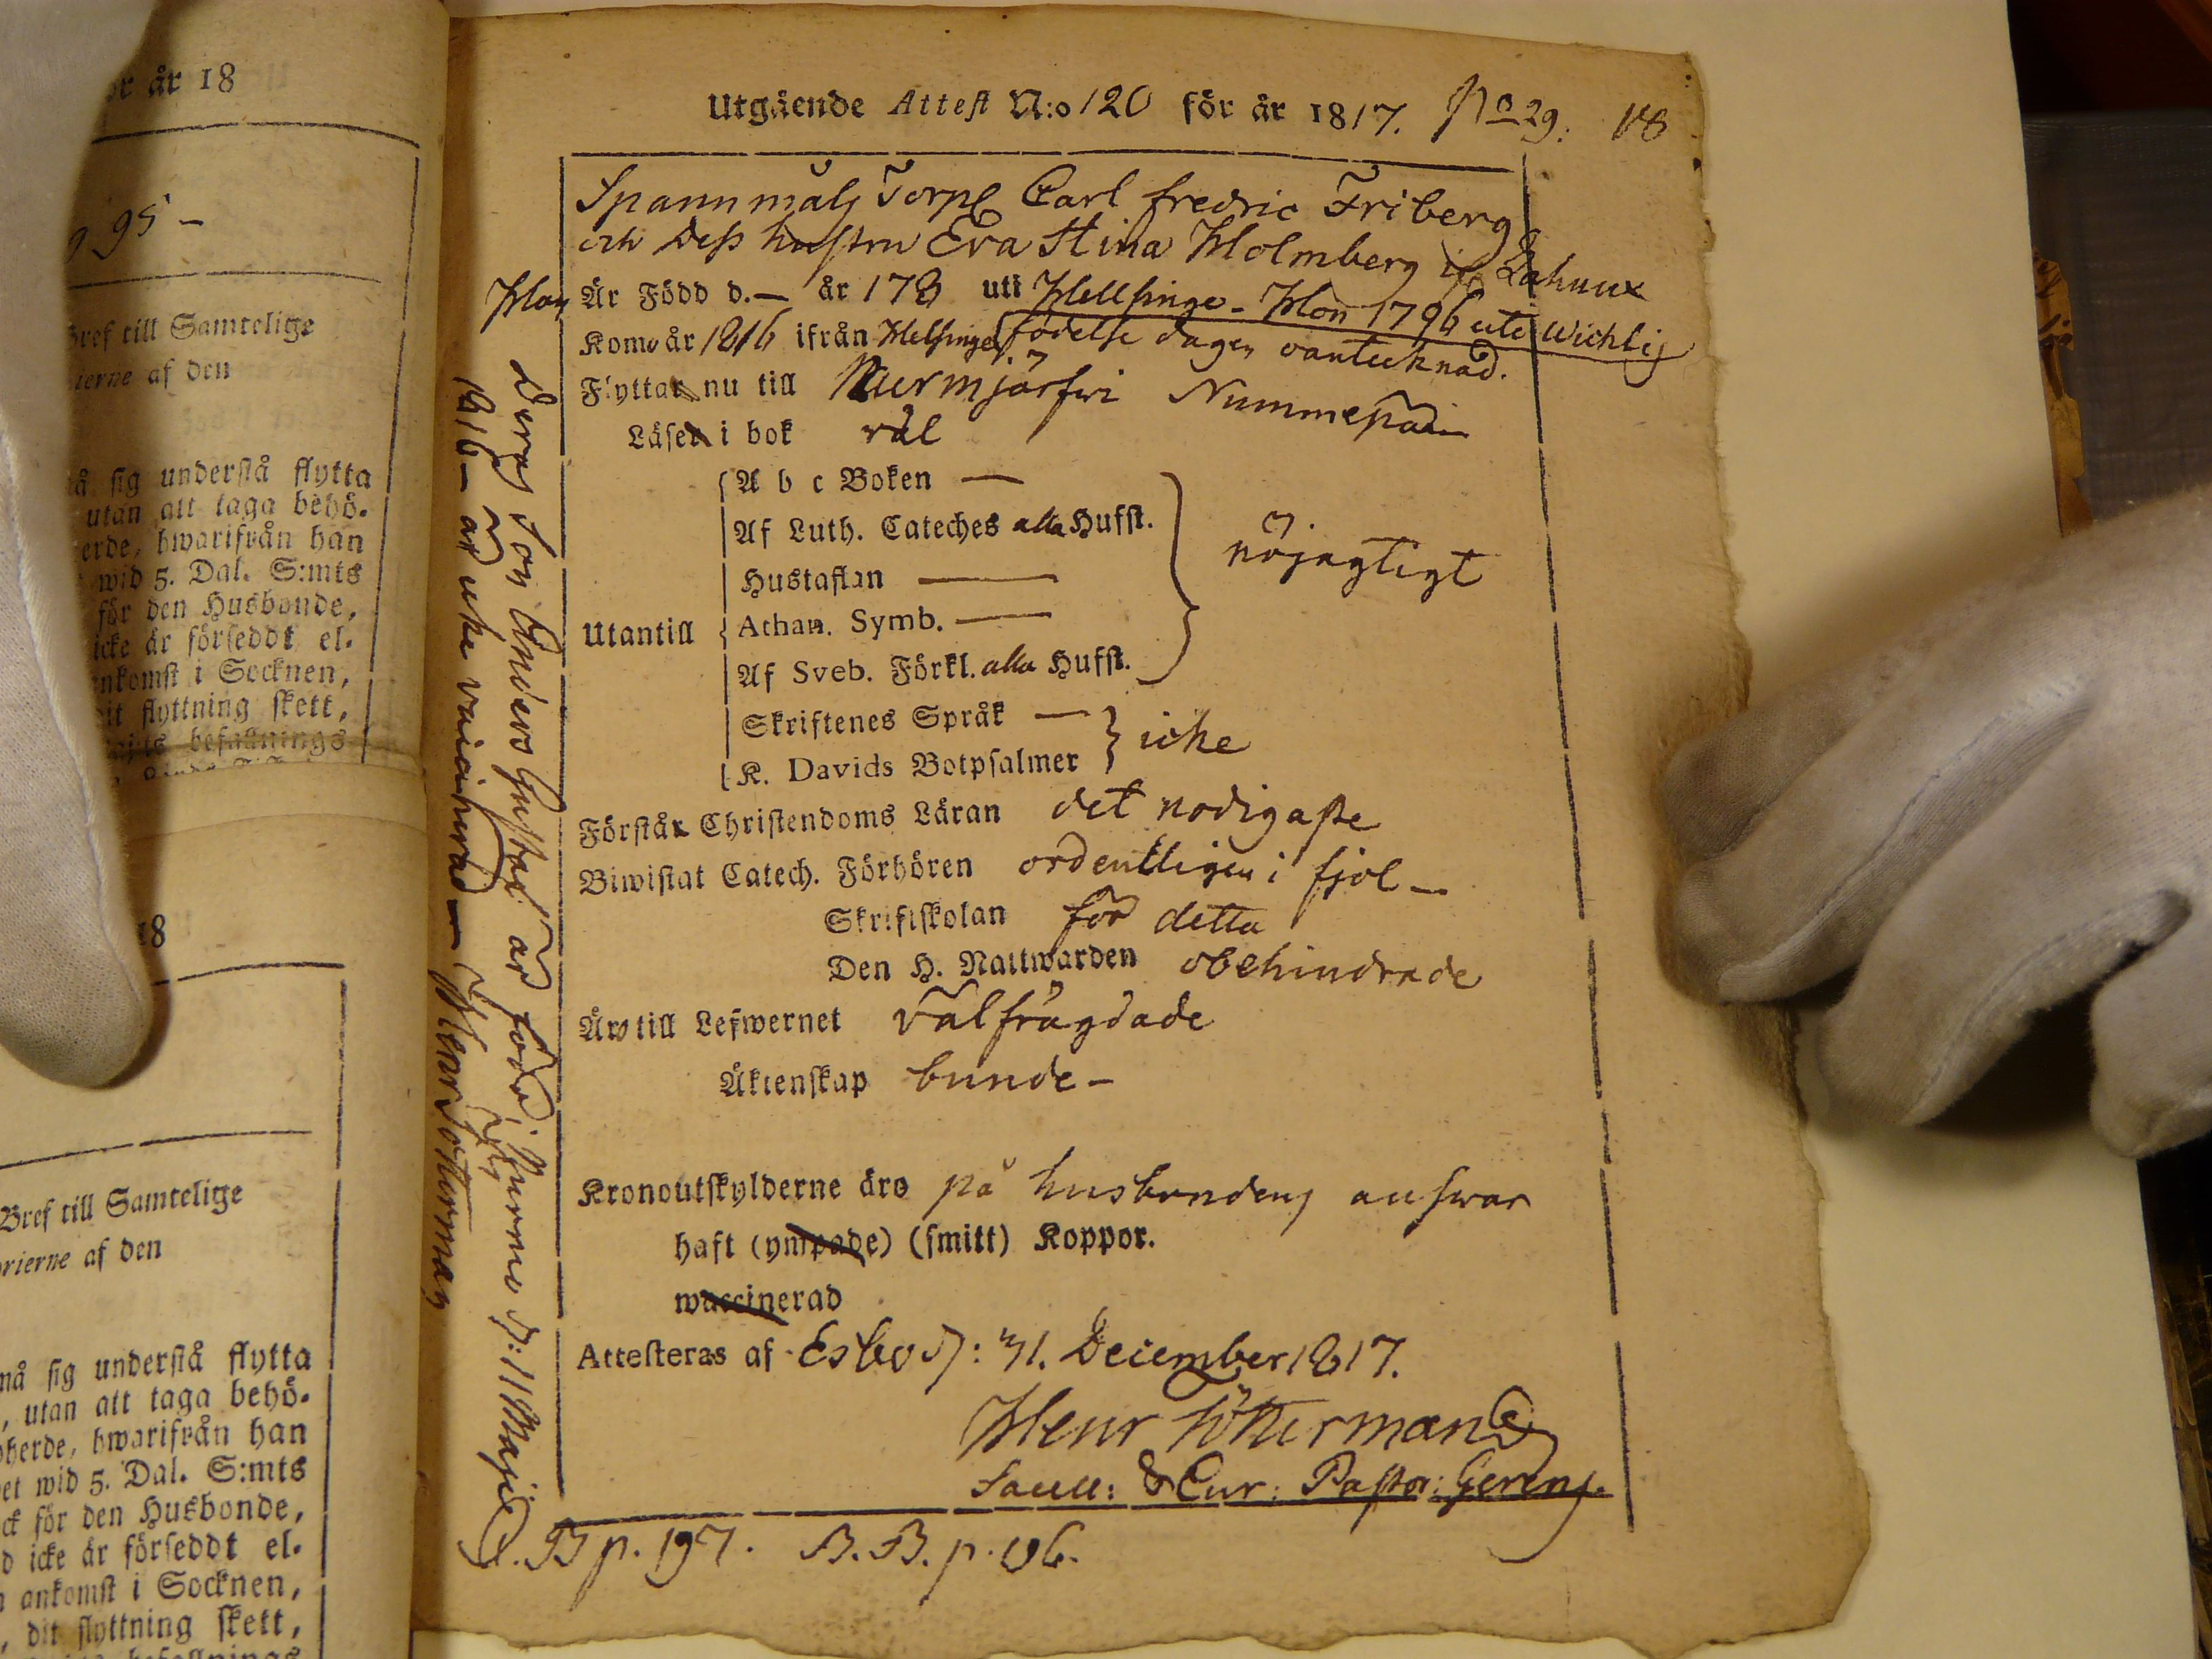 or år 18
95 –
Bref till Samtelige
ierne af den
å sig understå flytta
utan att taga behö-
erde, hwarifrån han
wid 5. Dal. S:mts
för den Husbonde,
icke är försedd el-
nkomst i Socknen,
it flyttning skett,
befallnings
18
Bref till Samtelige
rierne af den
må sig understå flytta
, utan att taga behö-
herde, hwarifrån han
et wid 5. Dal. S:mts
ck för den Husbonde,
d icke är försedd el-
ankomst i Socknen,
, dit flyttning skett,
Utgående Attest N:o 120 för år 1817. No 29. 18
Spannmåls Torp Carl fredric Friberg
och dess hustru Eva Stina Holmberg
Han Är Född d. — år 178 uti Helsinge – Hon 1796 uti Wichtis
Kom år 1816 ifrån Helsinge födelse dagen oantecknad.
Flyttar nu till Nurmjärfwi Nummepää
Läser i bok väl
A b c Boken —
Af Luth. Cateches alla Hufst.
Hustaflan —
nöjagtigt
Utantill
Athan. Symb. —
Af Sveb. Förkl. alla Hufst.
Skriftenes Språk —
icke
K. Davids Botpsalmer
Förstår Christendoms Läran det nödigaste
Biwistat Catech. Förhören ordentligen i fjol –
Skriftskolan för detta
Den H. Nattwarden obehindrade
Äro till Lefwernet välfrägdade
Äktenskap bunde –
Kronoutskylderne äro på husbondens answar
haft (ympade) (smitt) Koppor.
waccinerad
Attesteras af Esbo d: 31. December 1817.
Henr Töttermand
Sacell: & Cur: Pastor: Gerens.
p. 197. B.B. p. 196.
Deras Son Anders Gustaf är född d: 11 Maji
1816 – är icke vaccinerad – Henr Tötterman